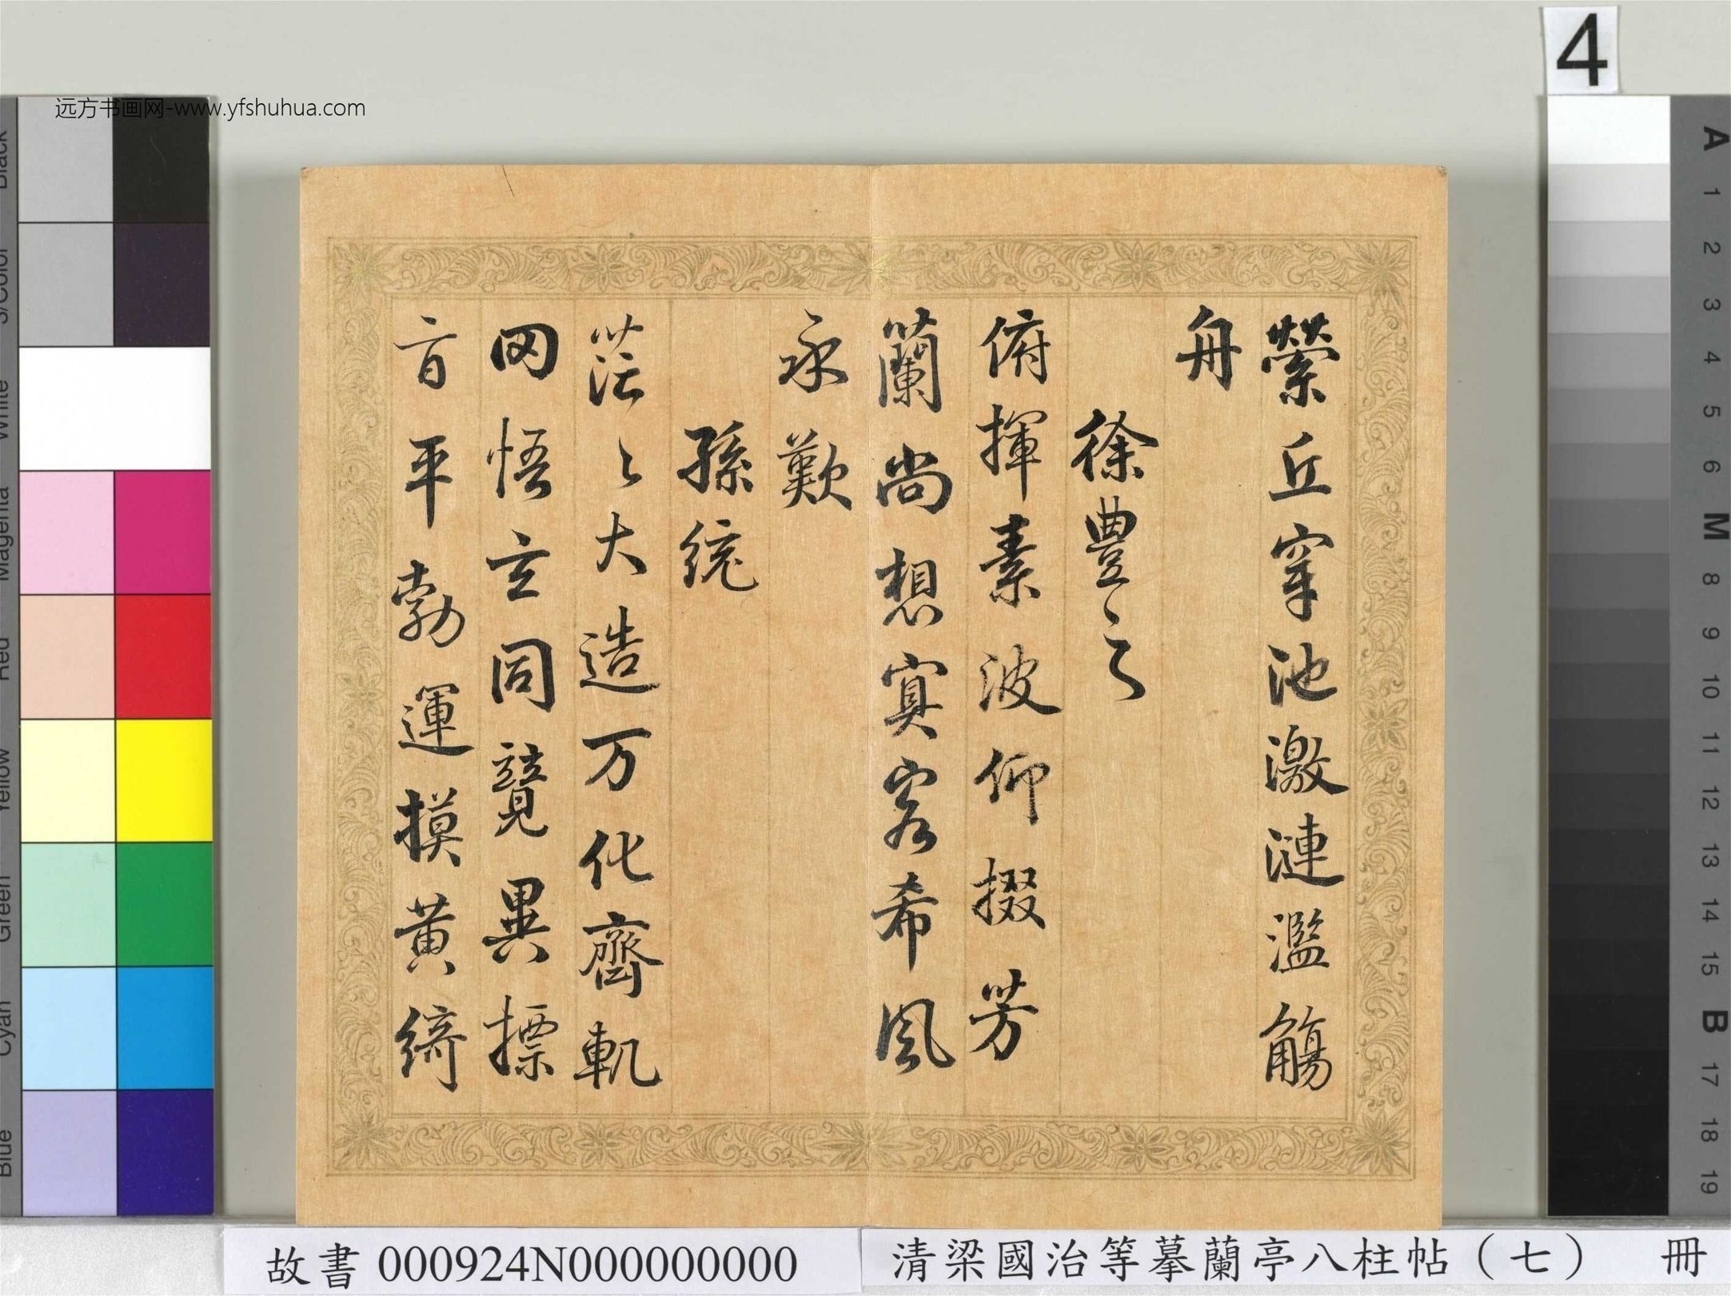 4
远方书画网-www.yfshuhua.com
縈丘穿池激漣濫觴
舟
徐豊之
俯揮素波仰掇芳
蘭尚想寘客希風
永歎
孫統
茫〻大造万化齊軌
罔悟玄同競異摽
音平勃運摸黄綺
Black
3/Color
White
Magenta
Red
Yellow
Green
Cyan
Blue
A
1
2
3
4
5
6
M
8
9
10
11
12
13
14
15
B
17
18
19
故書 000924N000000000
清梁國治等摹蘭亭八柱帖（七） 冊